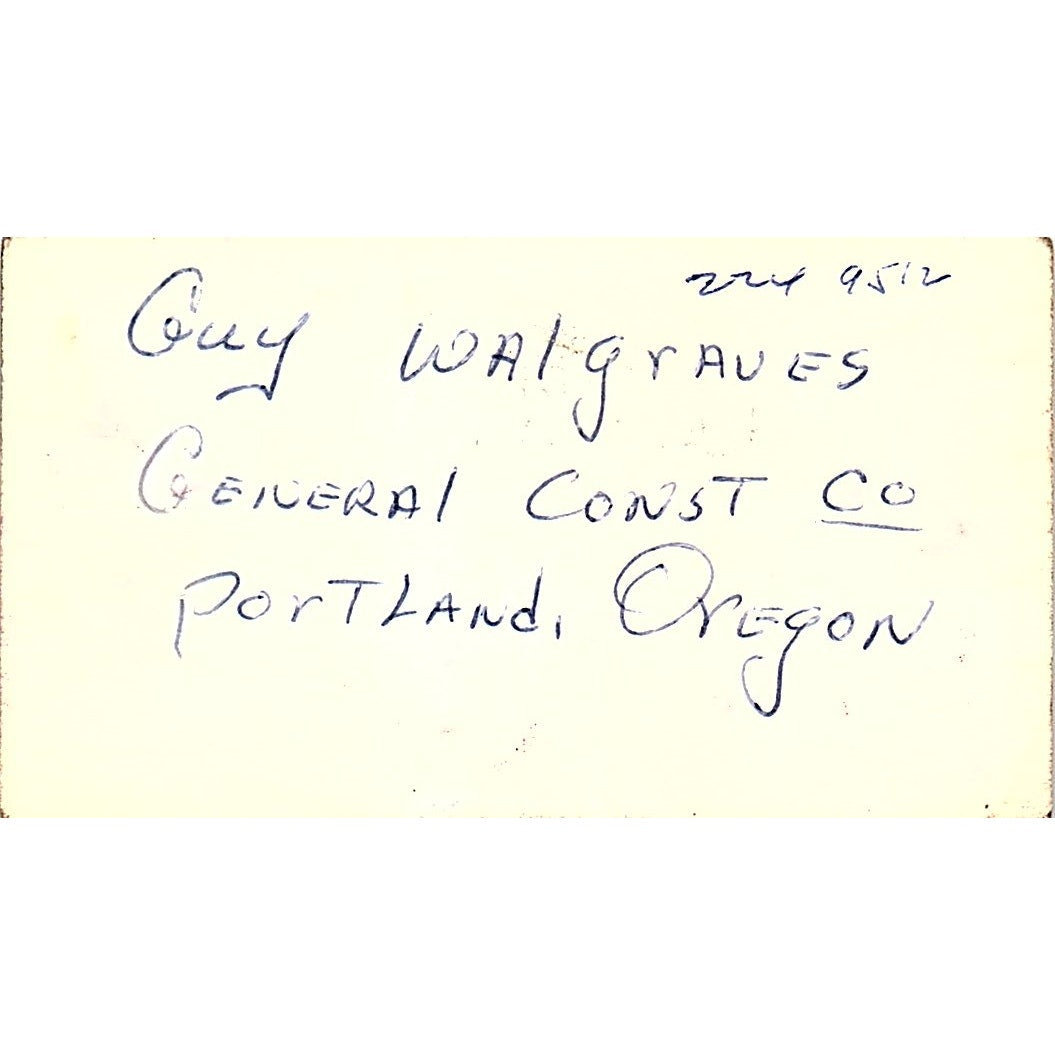 224 9512
Guy WAlgrAVES
GENERAl CONST CO
PorTLANd, OrEgON